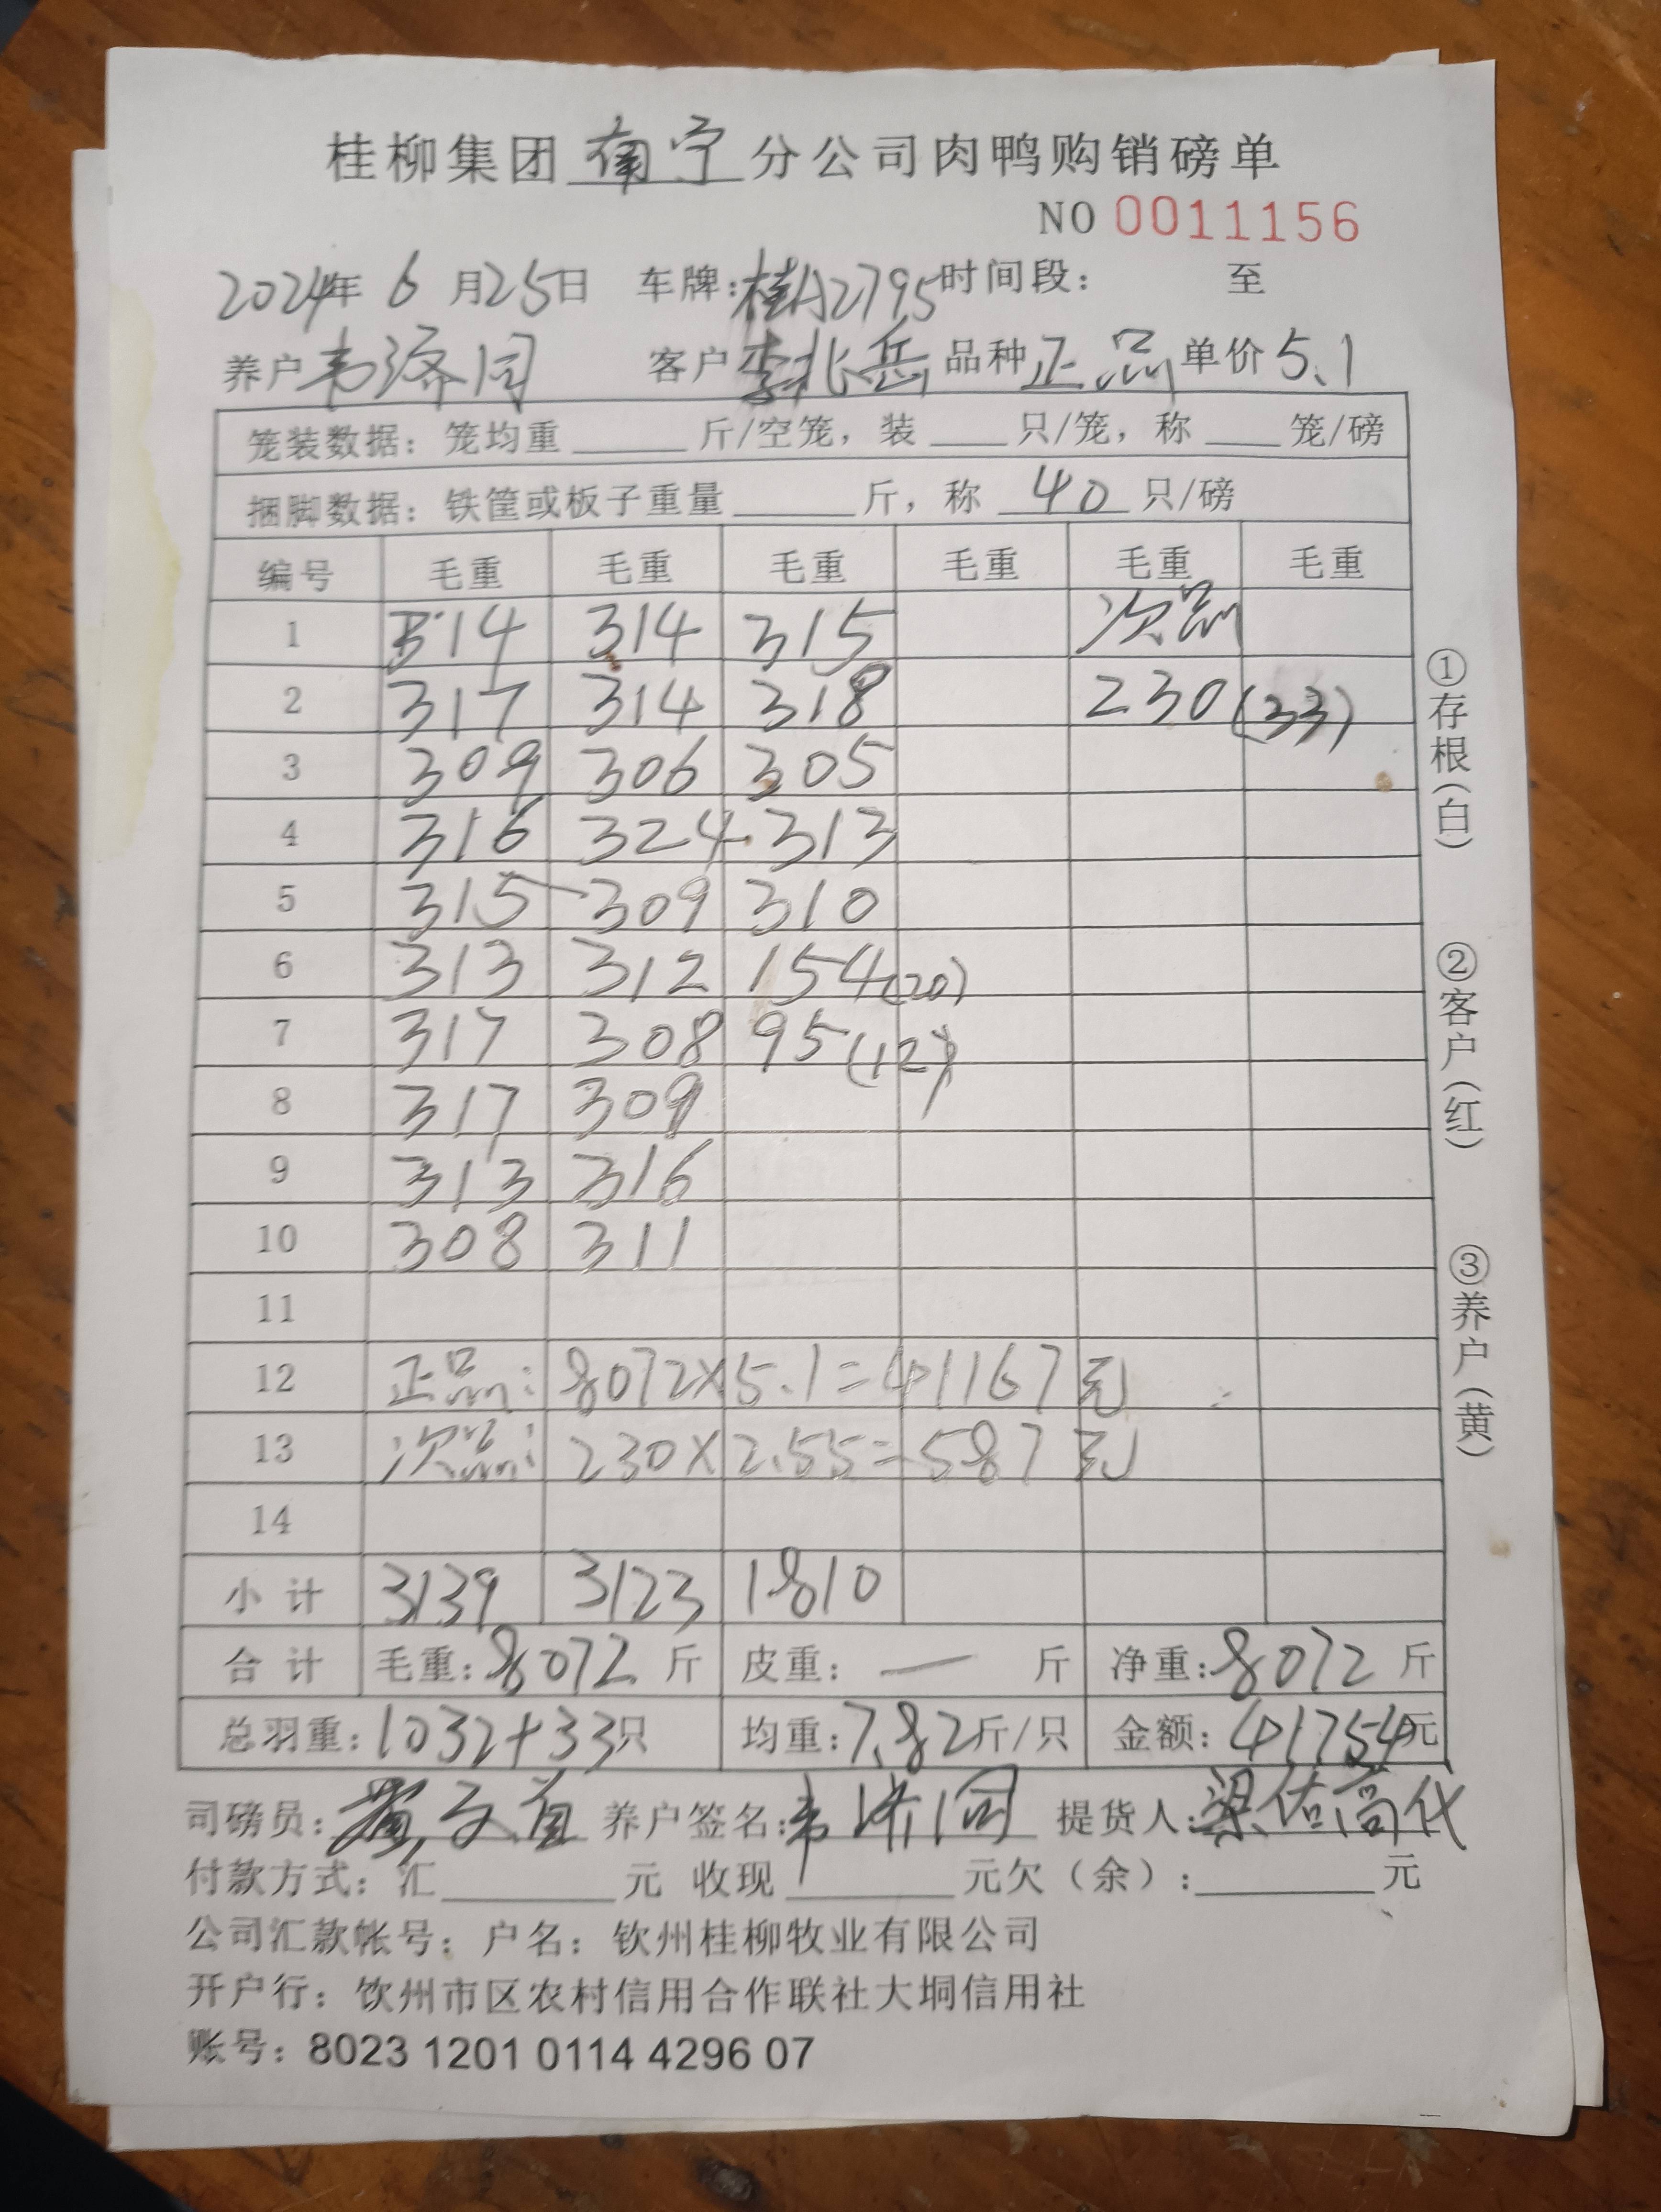 桂柳集团 南宁 分公司肉鸭购销磅单
NO 0011156
2024年 6 月25日 车牌:桂A2795 时间段: 至
养户 韦济同 客户 李北岳 品种 正品 单价 5.1
笼装数据: 笼均重______斤/空笼, 装____只/笼, 称____笼/磅
捆脚数据: 铁筐或板子重量______斤, 称 40 只/磅
编号 毛重 毛重 毛重 毛重 毛重 毛重
1 314 314 315 次品
2 317 314 318 230 (33)
3 309 306 305
4 316 324 313
5 315 309 310
6 313 312 154(20)
7 317 308 95(12)
8 317 309
9 313 316
10 308 311
11
12 正品: 8072×5.1=41167元
13 次品: 230×2.55=587元
14
小计 3139 3123 1810
合计 毛重:8072斤 皮重: — 斤 净重:8072斤
总羽重:1032+33只 均重:7.82斤/只 金额:41754元
司磅员: 养户签名:韦济同 提货人:梁佑高代
付款方式: 汇______元 收现______元欠(余):______元
公司汇款帐号: 户名: 钦州桂柳牧业有限公司
开户行: 饮州市区农村信用合作联社大垌信用社
账号: 8023 1201 0114 4296 07
①存根(白) ②客户(红) ③养户(黄)